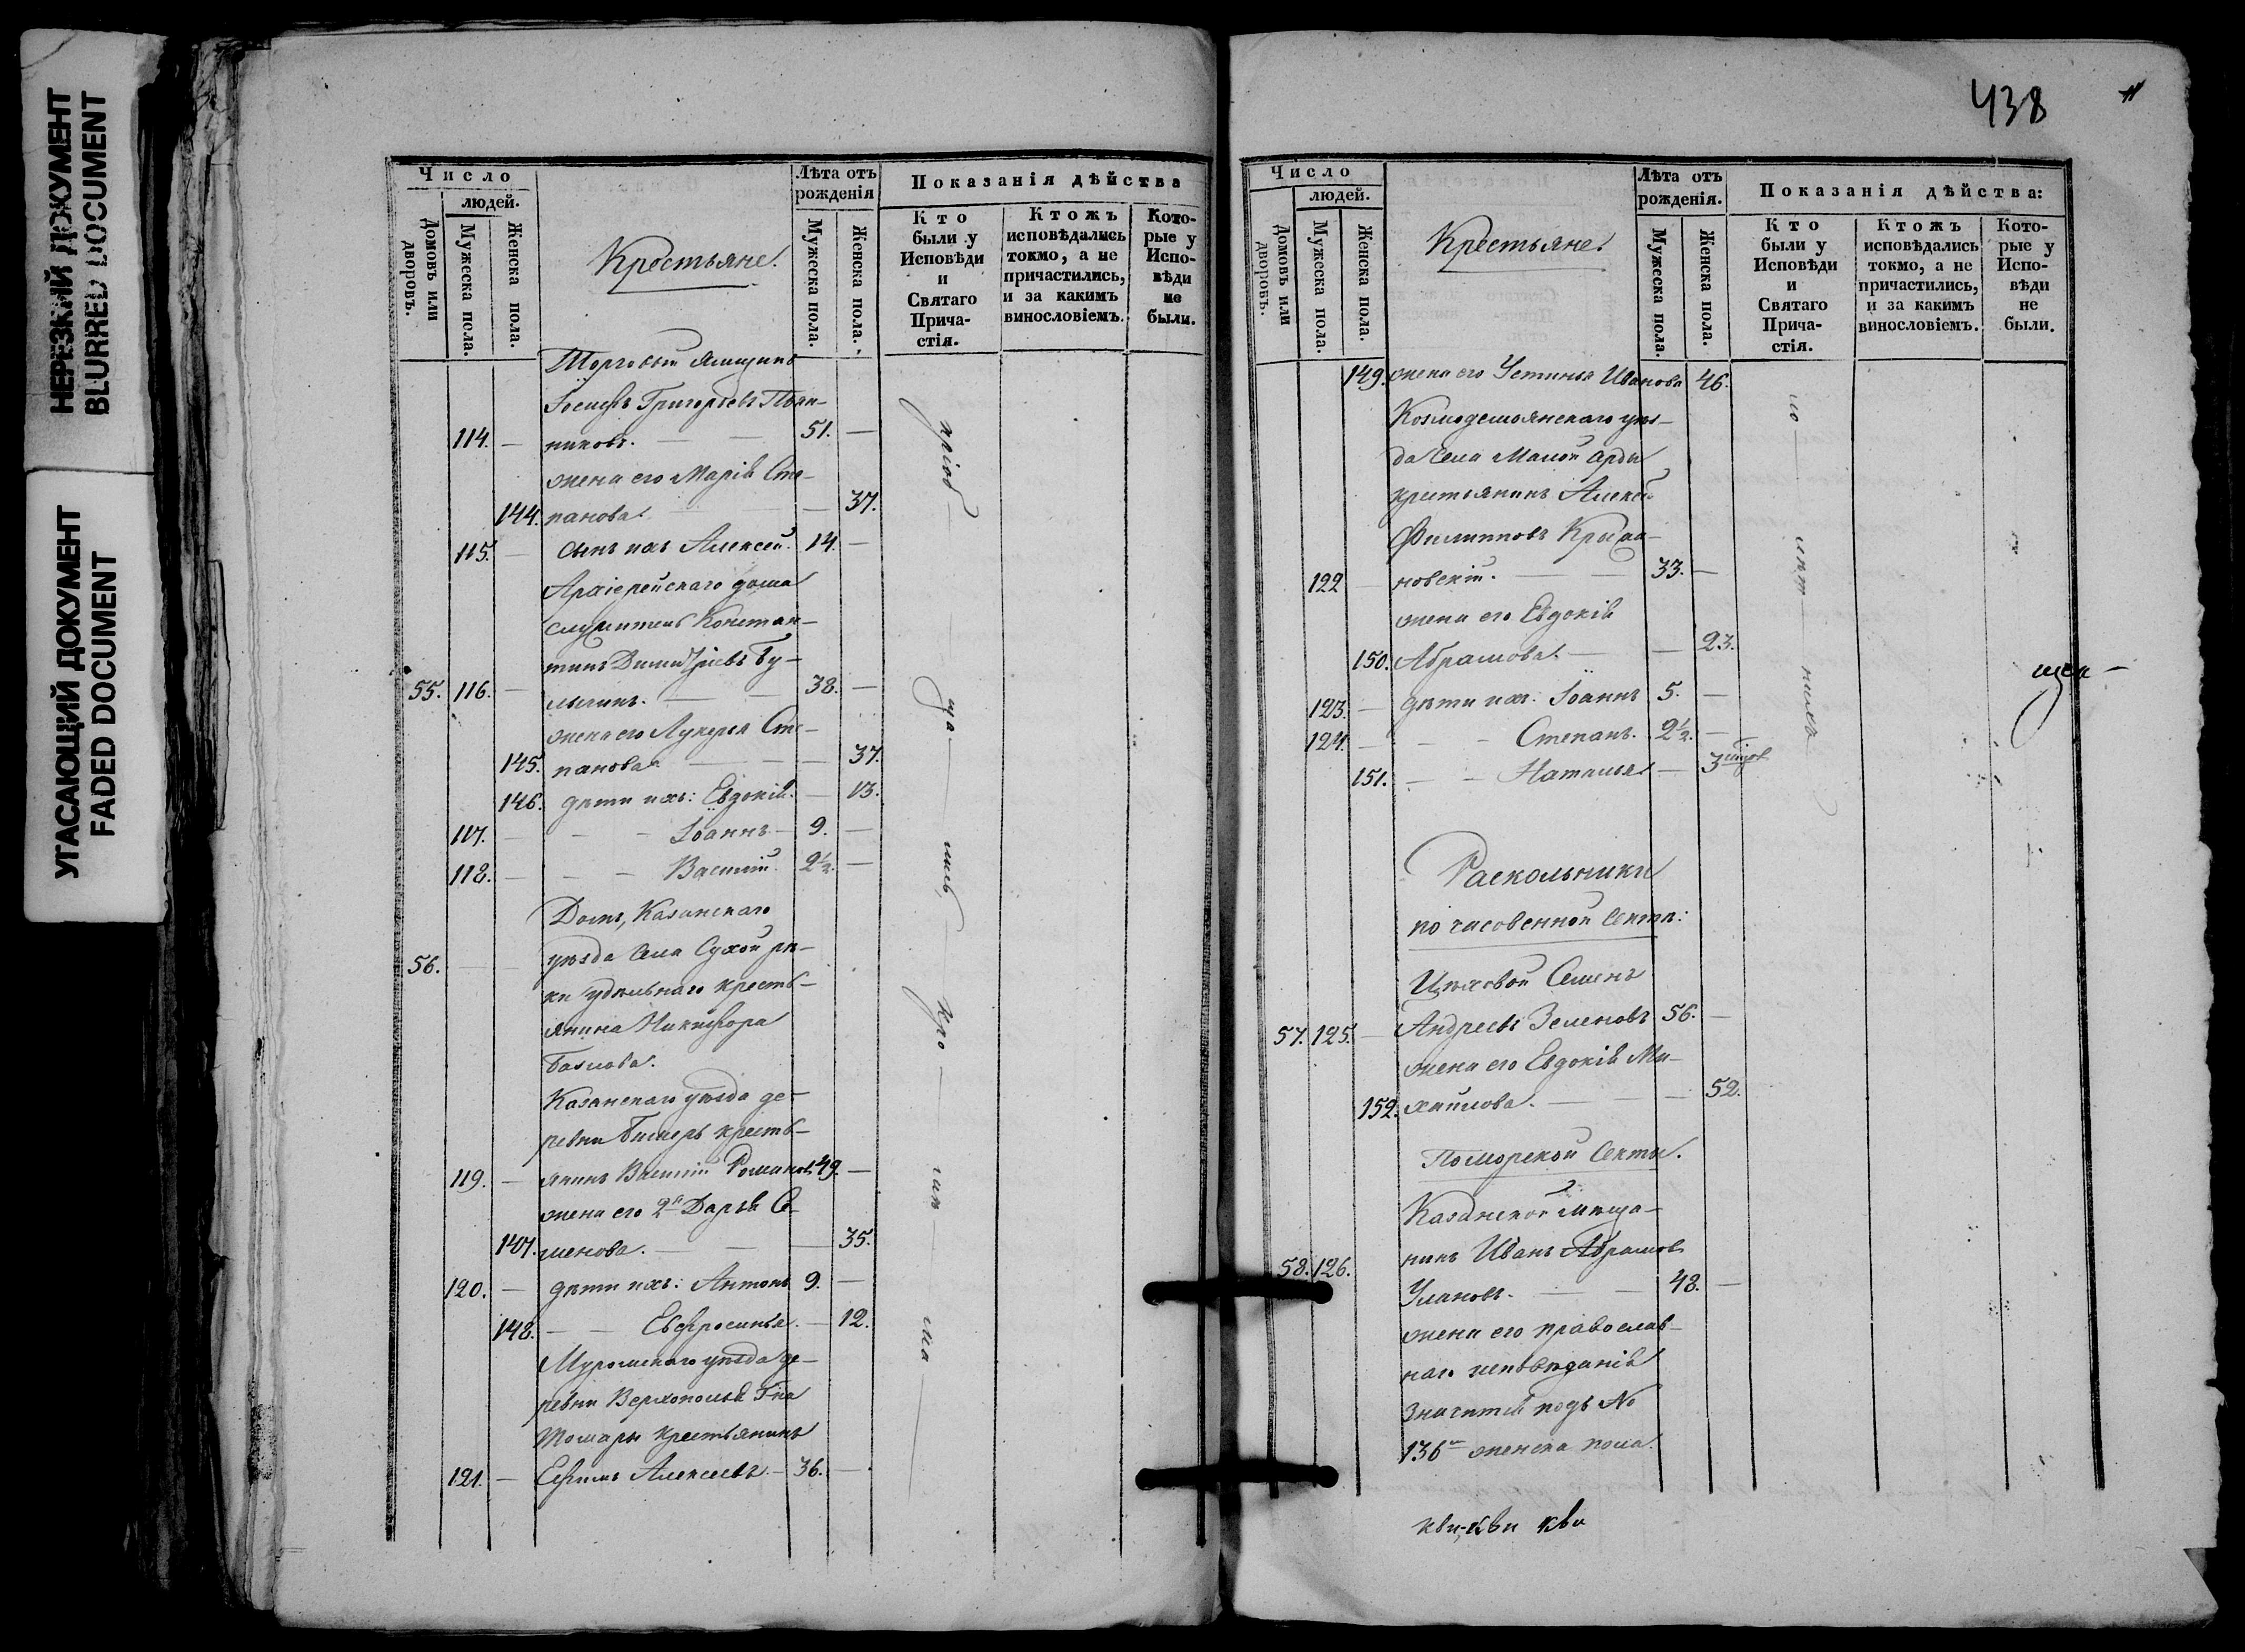 НЕРЕЗКИЙ ДОКУМЕНТ
BLURRED DOCUMENT
УГАСАЮЩИЙ ДОКУМЕНТ
FADED DOCUMENT
Число
людей.
Домовъ или дворовъ.
Мужеска пола.
Женска пола.
Крестьяне.
Лѣта отъ рожденія
Мужеска пола.
Женска пола.
Показанія дѣйства
Кто были у Исповѣди и Святаго Прича-стія.
Ктожъ исповѣдались токмо, а не причастились, и за какимъ винословіемъ.
Кото-рые у Испо-вѣди не были.
Торговый
Іосифъ Григорьевъ
114. — никовъ. — — 51. —
жена его Марія Сте-
144. панова. — — 37.
115. — сынъ ихъ Алексей. 14. —
Архіерейскаго дома
служитель Констан-
тинъ Димитріевъ Бу-
55. 116. — — — 38. —
жена его Лукерья Сте-
145. панова — — — 37.
146. дѣти ихъ: Евдокія. — 13.
117. — — — Іоаннъ — 9. —
118. — — — Василій. 2½. —
Домъ, Казанскаго
56. — — уѣзда села Сухой рѣ-
ки удѣльнаго кресть-
янина Никифора
Казанскаго уѣзда де-
ревни кресть-
119. — янинъ Василій Романовъ 49. —
жена его 2я Дарья Се-
147. менова. — — — 35.
120. — дѣти ихъ: Антонъ 9. —
148. — — Евфросинья. — 12.
Муромскаго уѣзда де-
ревни Верхополья Г-на
крестьянинъ
121. — Ефимъ Алексеевъ. — 36. —
438
Число
людей.
Домовъ или дворовъ.
Мужеска пола.
Женска пола.
Крестьяне.
Лѣта отъ рожденія.
Мужеска пола.
Женска пола.
Показанія дѣйства:
Кто были у Исповѣди и Святаго Прича-стія.
Ктожъ исповѣдались токмо, а не причастились, и за какимъ винословіемъ.
Кото-рые у Испо-вѣди не были.
149. жена его Устинья Иванова 46.
Козмодемьянскаго уѣз-
да села Малой Арды
крестьянинъ Алексѣй
Филипповъ
122 — новскій. — — 33. —
жена его Евдокія
150. Абрамова. — — 23.
123. — дѣти ихъ: Іоаннъ 5. —
124. — — — Степанъ. 2½. —
151. — — Наталья — 3
Раскольники
по часовенной сектѣ:
Цѣховой Семенъ
57. 125. — Андреевъ Зеленовъ 56. —
жена его Евдокія Ми-
152. хайлова. — — — 52.
Поморской секты.
Казанской мѣща-
58. 126. нинъ Иванъ Абрамовъ
Улановъ. — — 48. —
жена его православ-
наго исповѣданія
значится подъ №
136м женска пола.